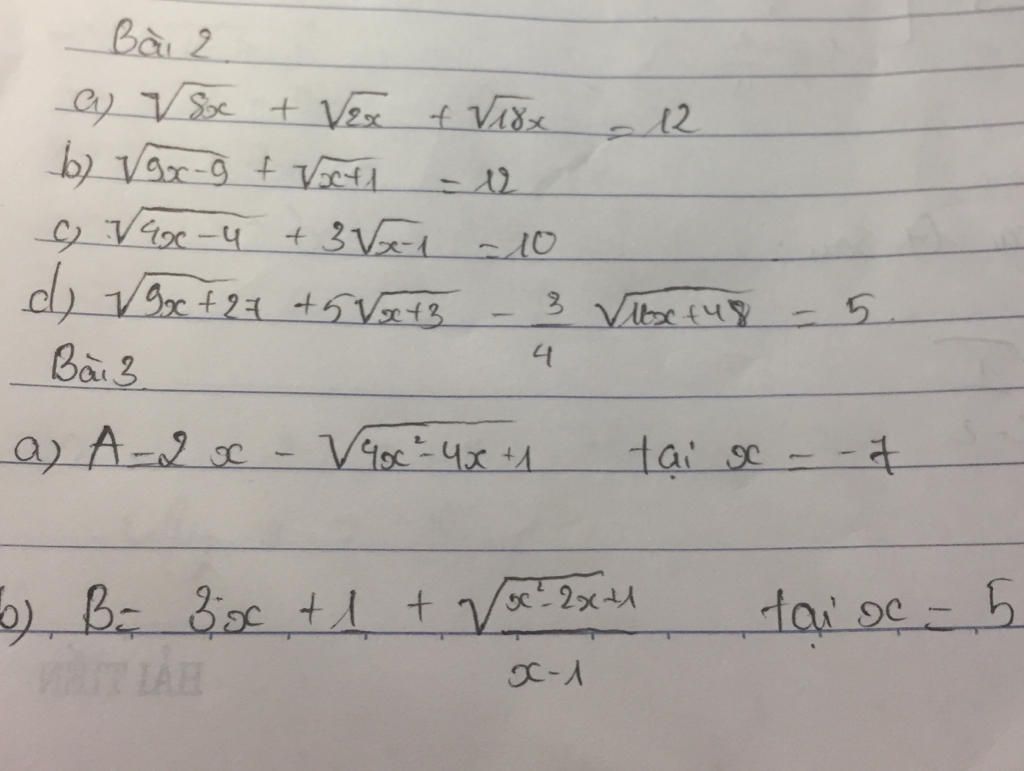 Bài 2
a) √8x + √2x + √18x = 12
b) √9x-9 + √x+1 = 12
c) √4x-4 + 3√x-1 = 10
d) √9x+27 + 5√x+3 - 3/4 √16x+48 = 5.
Bài 3
a) A = 2x - √4x²-4x+1 tại x = -7
b) B = 3x + 1 + √x²-2x+1 / x-1 tại x = 5
HẢI TIẾN